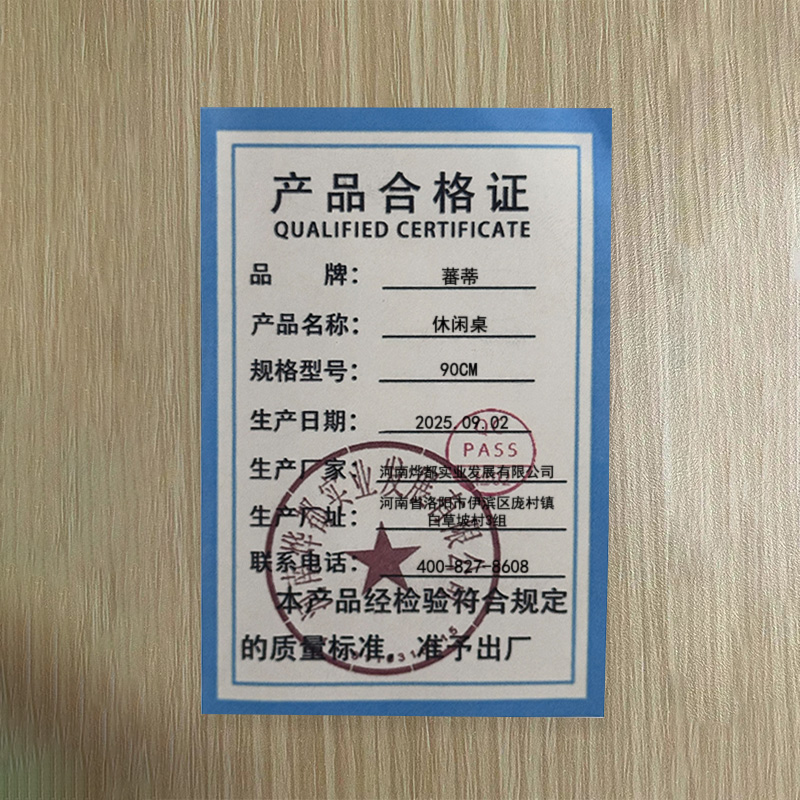 产品合格证
QUALIFIED CERTIFICATE
品 牌： 蕃蒂
产品名称： 休闲桌
规格型号： 90CM
生产日期： 2025.09.02
PASS
生产厂家： 河南烨都实业发展有限公司
生产厂址： 河南省洛阳市伊滨区庞村镇
白草坡村3组
联系电话： 400-827-8608
本产品经检验符合规定
的质量标准。准予出厂
河南烨都实业发展有限公司